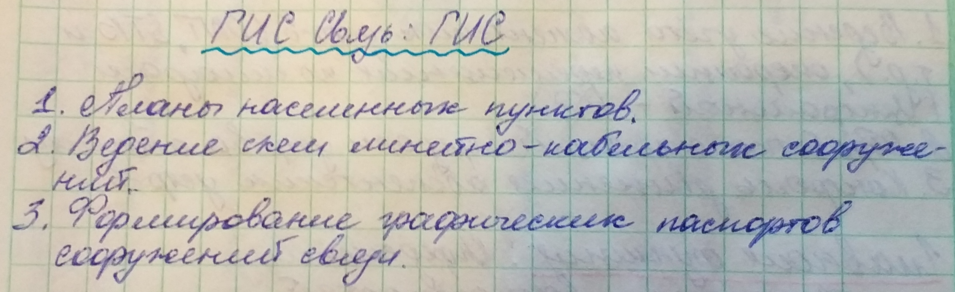 ГИС Связь: ГИС
1. Планы населенных пунктов.
2. Ведение схем линейно-кабельных сооруже-
ний.
3. Формирование графических паспортов
сооружений связи.